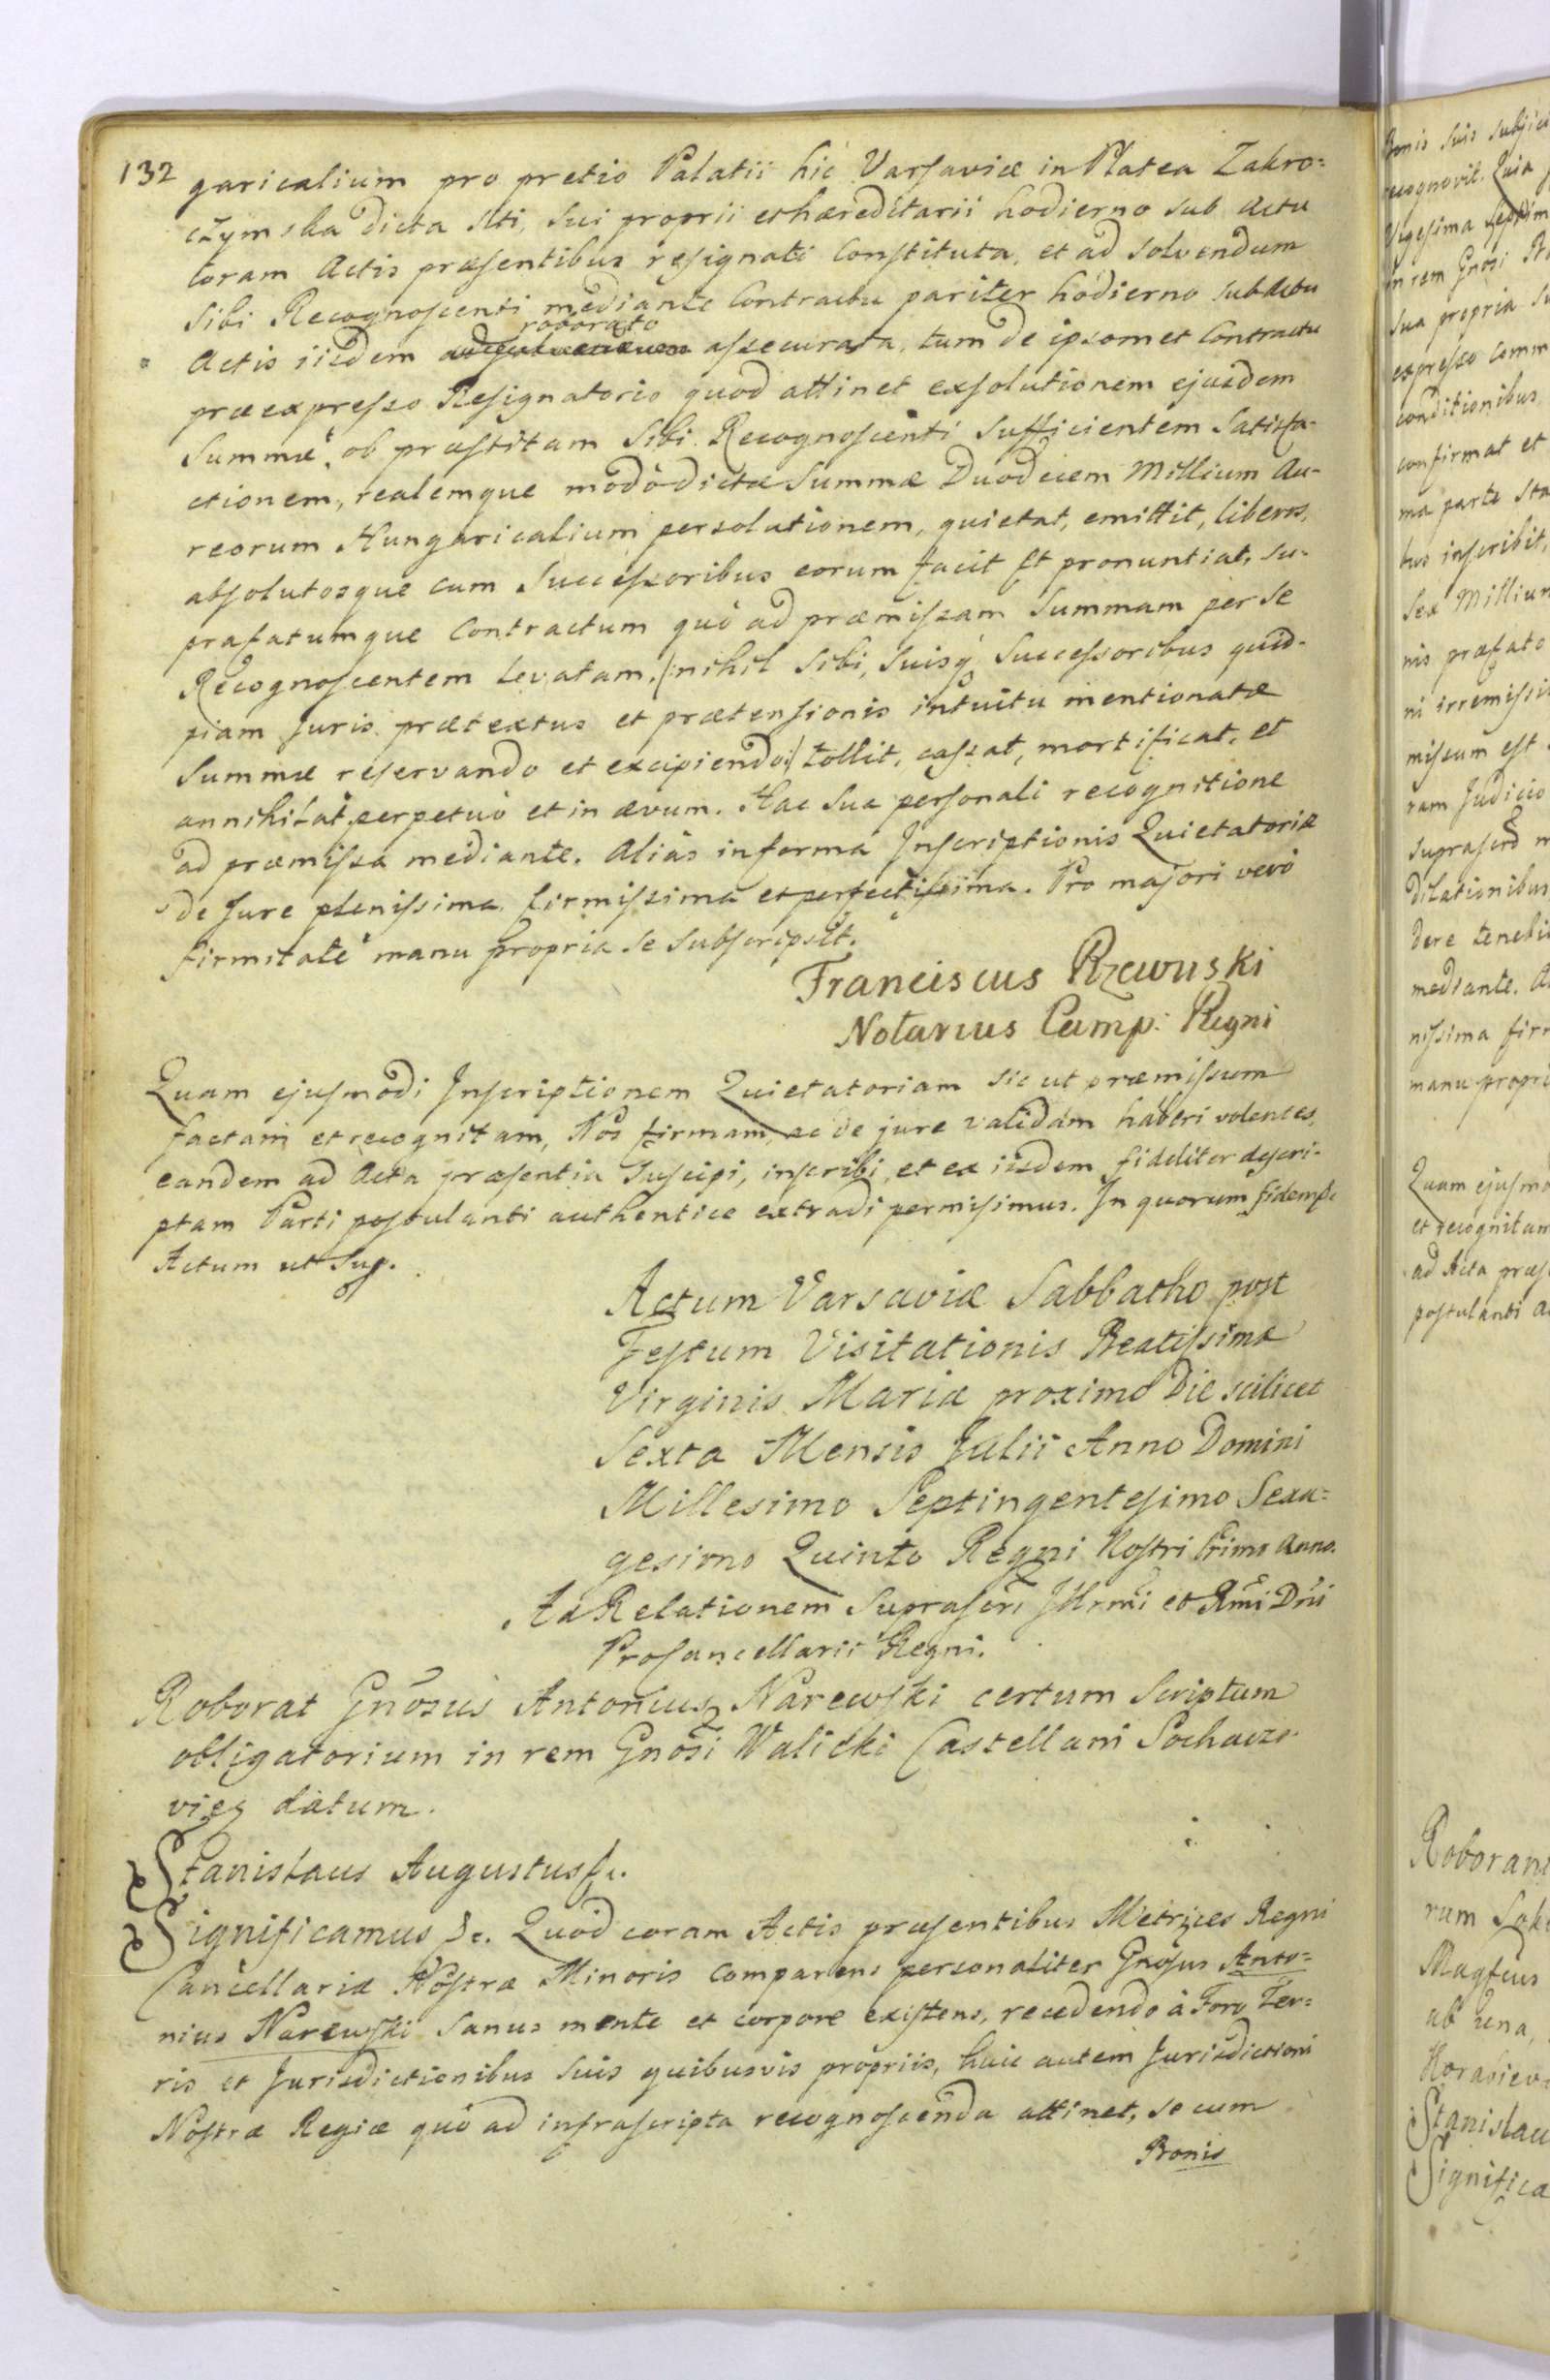 132
garicalium pro pretio Palatii hic Varsaviæ in Platea Zakro=
czymska dicta siti, sui proprii et hæreditarii hodierno sub actu
coram Actis præsentibus resignati constituta, et ad solvendum
sibi Recognoscenti mediante Contractu pariter hodierno sub actu
roborato
Actis iisdem assecurata, tum de ipsomet Contractu
præexpresso Resignatorio quod attinet exsolutionem ejusdem
Summæ, ob præstitam sibi Recognoscenti sufficientem Satisfa-
ctionem, realemque modò dictæ Summæ Duodecem Millium Au-
reorum Hungaricalium persolutionem, quietat, emittit, liberos,
absolutosque cum Successoribus eorum facit et pronuntiat, su-
prafatumque Contractum quò ad præmissam Summam per se
Recognoscentem levatam, (:nihil sibi, suisq; Successoribus quid-
piam Juris prætextus et prætensionis intuitu mentionatæ
Summæ reservando et excipiendo:) tollit, cassat, mortificat, et
annihilat, perpetuò et in ævum. Hac sua personali recognitione
ad præmissa mediante. Aliàs in forma Inscriptionis Quietatoriæ
de Jure plenissima, firmissima et perfectissima. Pro majori verò
firmitate manu propria se subscripsit.
Franciscus Rzewuski
Notarius Camp: Regni
Quam ejusmodi Inscriptionem Quietatoriam sic ut præmissum
factam et recognitam, Nos firmam, ac de jure validam haberi volentes,
eandem ad Acta præsentia suscipi, inscribi, et ex iisdem fideliter descri-
ptam Parti postulanti authentice extradi permisimus. In quorum fidem &c
Actum ut sup.
Actum Varsaviæ Sabbatho post
Festum Visitationis Beatissimæ
Virginis Mariæ proximo Die scilicet
Sexta Mensis Julii Anno Domini
Millesimo Septingentesimo Sexa=
gesimo Quinto Regni Nostri Primo Anno.
Ad Relationem Suprascri Illrmi et Rmi Dñi
Procancellarii Regni.
Roborat Gnõsus Antonius Narewski certum Scriptum
obligatorium in rem Gnõsi Walicki Castellani Sochacze-
vien datum.
Stanislaus Augustus &c.
Significamus &c. Quod coram Actis præsentibus Metrices Regni
Cancellariæ Nostræ Minoris comparens personaliter Gnosus Anto=
nius Narewski sanus mente et corpore existens, recedendo à Foro Ter=
ris et Jurisdictionibus suis quibusvis propriis, huic autem Jurisdictioni
Nostræ Regiæ quò ad infrascripta recognoscenda attinet, se cum
Bonis
Bonis suis subjici
recognovit. Quia
Vigesima septim
in rem Gnosi
sua propria
expresso comm
conditionibus
confirmat et
ma parte
inscribit,
Sex Millium
nis præfato
ni irremissi
missum est
ram Judicio
suprascrõ
Dilationibus
dere tenebi
mediante. A
nissima fir
manu propri
Quam ejusmo
et recognitam
ad Acta præs
postulanti a
Roboran
rum
Magfcus
ab una,
Stanislau
Significa